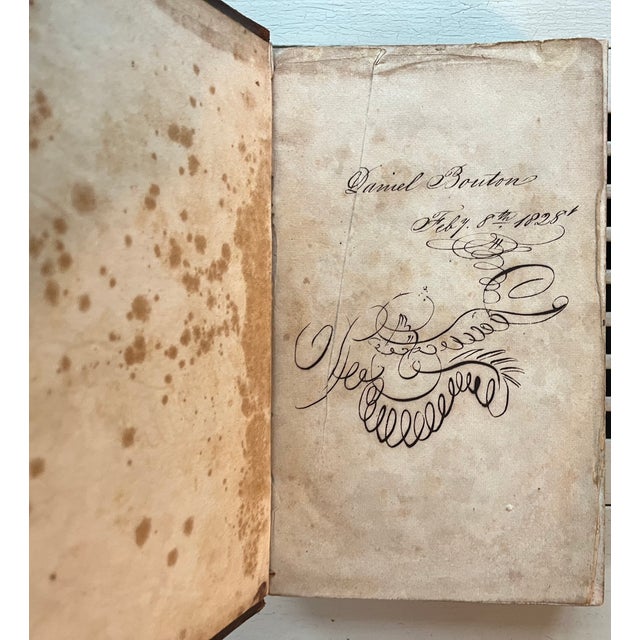 Daniel Bouton
Feby. 8th. 1828